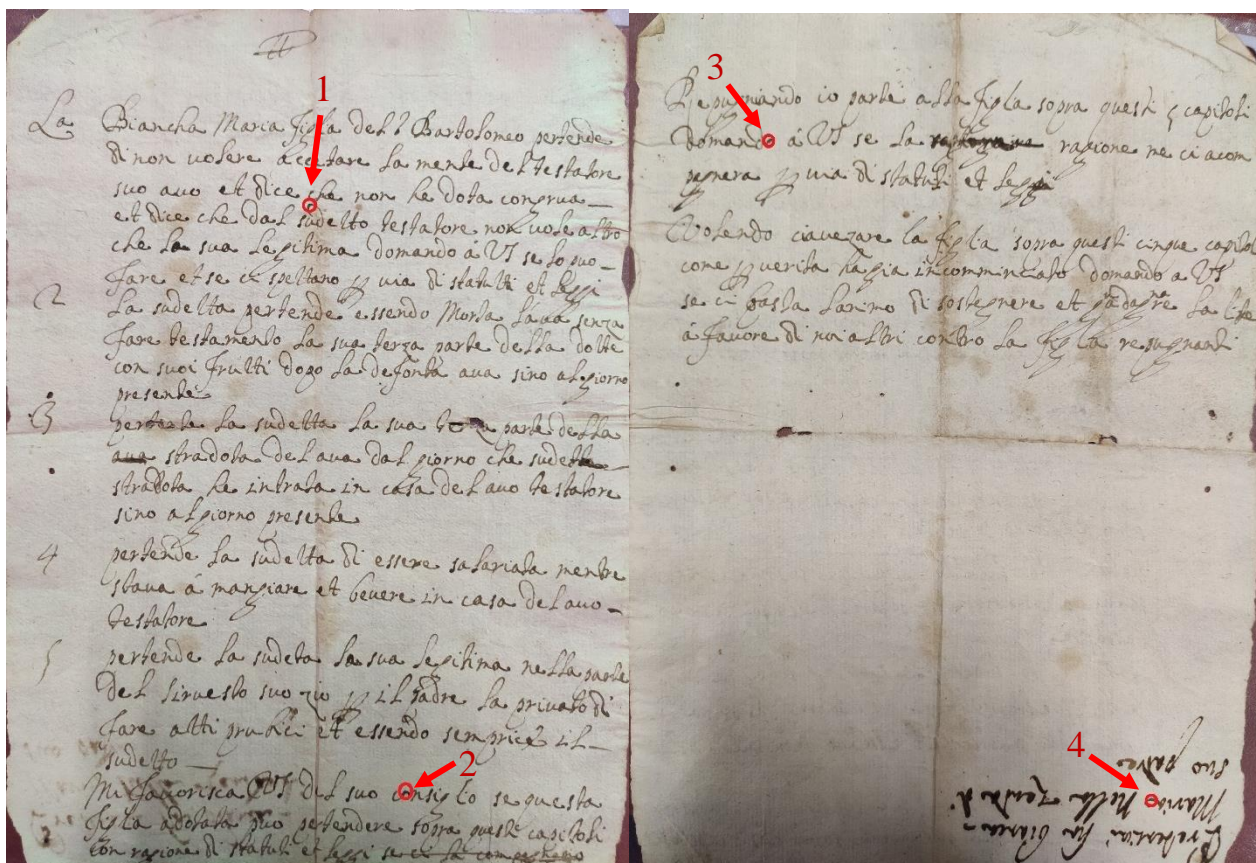 1
La Biancha Maria figla dell Bartolomeo pertende
di non volere acetare la mente del testatore
suo avo et dice che non ha dota congrua
et dice che dal sudetto testatore non vole altro
che la sua legitima domando á VS se lo puo
fare et se ci spettano p via di statutti et leggi
2 La sudetta pertende essendo Morta lava senza
fare testamento la sua terza parte della dotte
con suoi frutti dopo la defonta ava sino al giorno
presente
3 pertende la sudetta la sua terza parte della
ava stradota del ava dal giorno che sudetta
stradota he intrata in casa del avo testatore
sino al giorno presente
4 pertende la sudetta di essere salariata mentre
stava á mangiare et bevere in casa del avo
testatore
5 pertende la sudeta la sua legitima nella parte
del siruesto suo zio p il padre la privato di
fare atti prublici et essendo semprice il
sudetto
2
Mi favorisca VS del suo consiglo se questa
figla adotata puo pertendere sopra questi capitoli
con ragione di statuti et leggi se ci la compagnano
3
Repugniando io parte alla figla sopra questi 5 capitoli
domando á VS se la ragione ne ci acom
pegnera p via di statuti et leggi
Volendo ciavezare la figlia sopra questi cinque capitoli
come p verita hagia incomminciato domando a VS
se ci basta lanimo di sostegnere et guadagnre la lite
á favore di noi altri contro la figla repugnanti
4
Pretensioni fra Bianca
Maria Nella Zenda di
suo padre